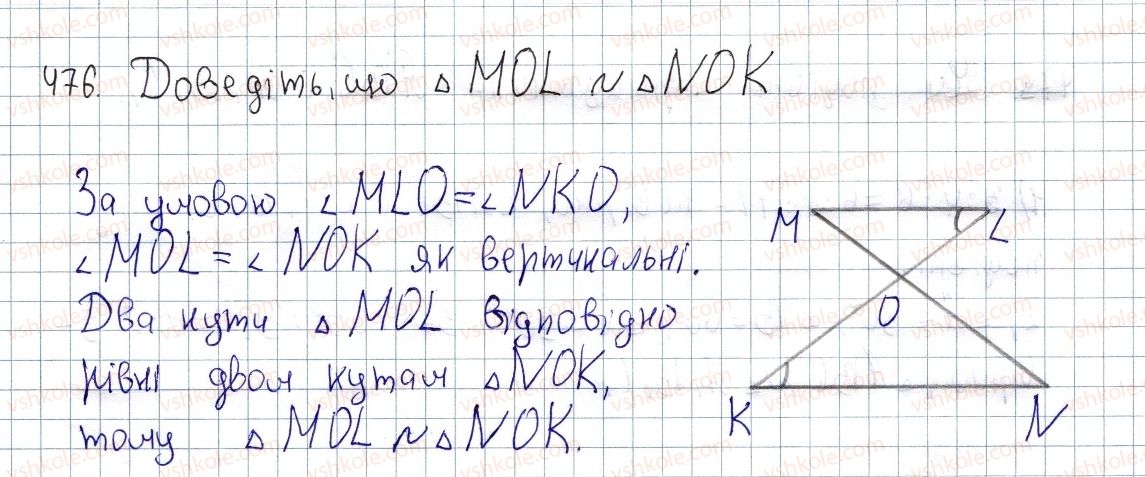 476. Доведіть, що △ MOL ~ △ NOK
За умовою ∠MLO = ∠NKO,
∠MOL = ∠NOK як вертикальні.
Два кути △ MOL відповідно
рівні двом кутам △ NOK,
тому △ MOL ~ △ NOK.
M L
O
K N
vshkole.com